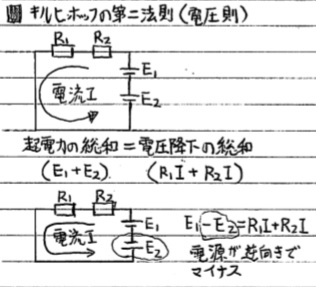 圖 キルヒホッフの第二法則(電圧則)
R₁ R₂
E₁
電流I
E₂
起電力の総和=電圧降下の総和
(E₁+E₂) (R₁I+R₂I)
R₁ R₂
E₁ E₁-E₂=R₁I+R₂I
電流I
E₂ 電源が逆向きで
マイナス